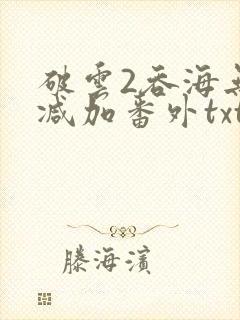 破雲2吞海無
减加番外txt
滕海濱